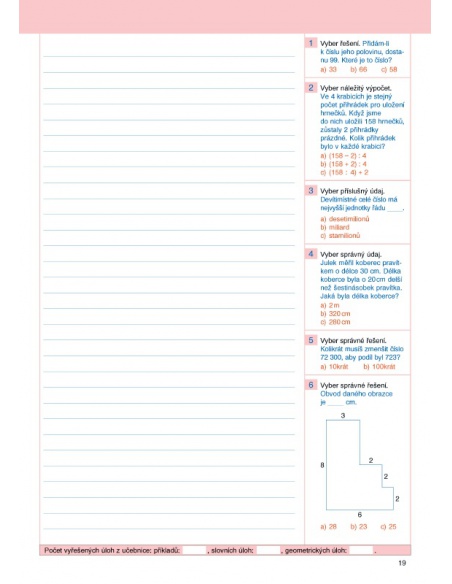 1 Vyber řešení. Přidám-li
k číslu jeho polovinu, dosta-
nu 99. Které je to číslo?
a) 33 b) 66 c) 58
2 Vyber náležitý výpočet.
Ve 4 krabicích je stejný
počet přihrádek pro uložení
hrnečků. Když jsme
do nich uložili 158 hrnečků,
zůstaly 2 přihrádky
prázdné. Kolik přihrádek
bylo v každé krabici?
a) (158 – 2) : 4
b) (158 + 2) : 4
c) (158 : 4) + 2
3 Vyber příslušný údaj.
Devítimístné celé číslo má
nejvyšší jednotky řádu ____,
a) desetimilionů
b) miliard
c) stamilionů
4 Vyber správný údaj.
Julek měřil koberec pravít-
kem o délce 30 cm. Délka
koberce byla o 20 cm delší
než šestinásobek pravítka.
Jaká byla délka koberce?
a) 2 m
b) 320 cm
c) 280 cm
5 Vyber správné řešení.
Kolikrát musíš zmenšit číslo
72 300, aby podíl byl 723?
a) 10krát b) 100krát
6 Vyber správné řešení.
Obvod daného obrazce
je ____ cm.
3
8
2
2
2
6
a) 28 b) 23 c) 25
Počet vyřešených úloh z učebnice: příkladů: , slovních úloh: , geometrických úloh: .
19